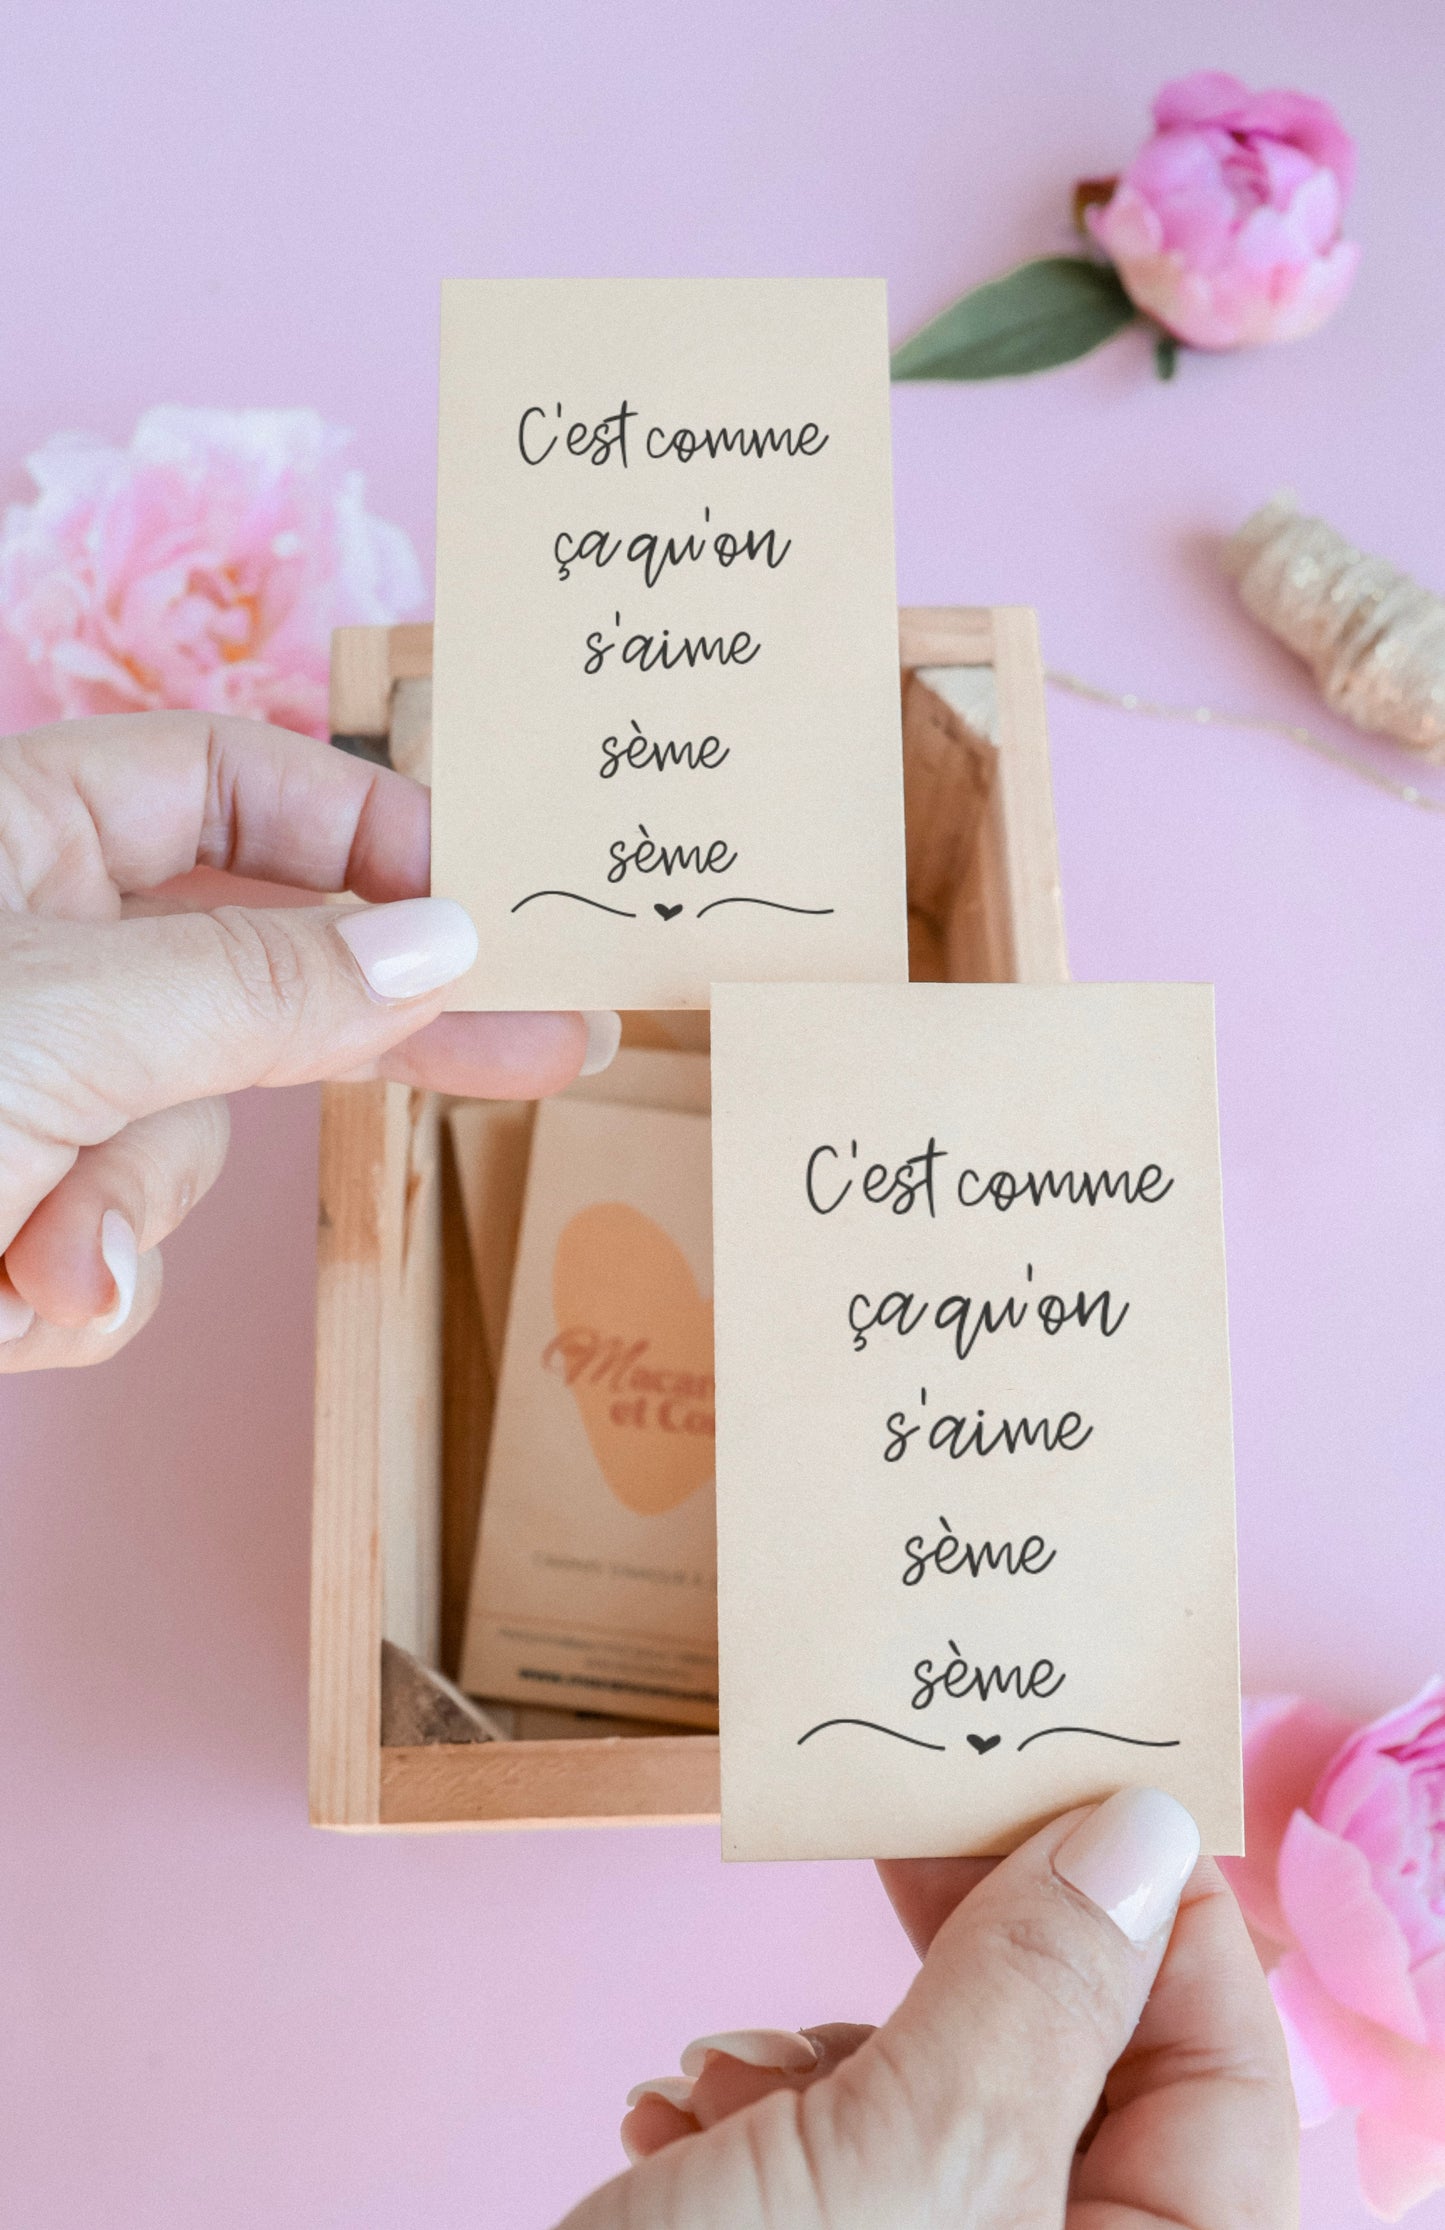 C'est comme
ça qu'on
s'aime
sème
sème
C'est comme
ça qu'on
s'aime
sème
sème
et